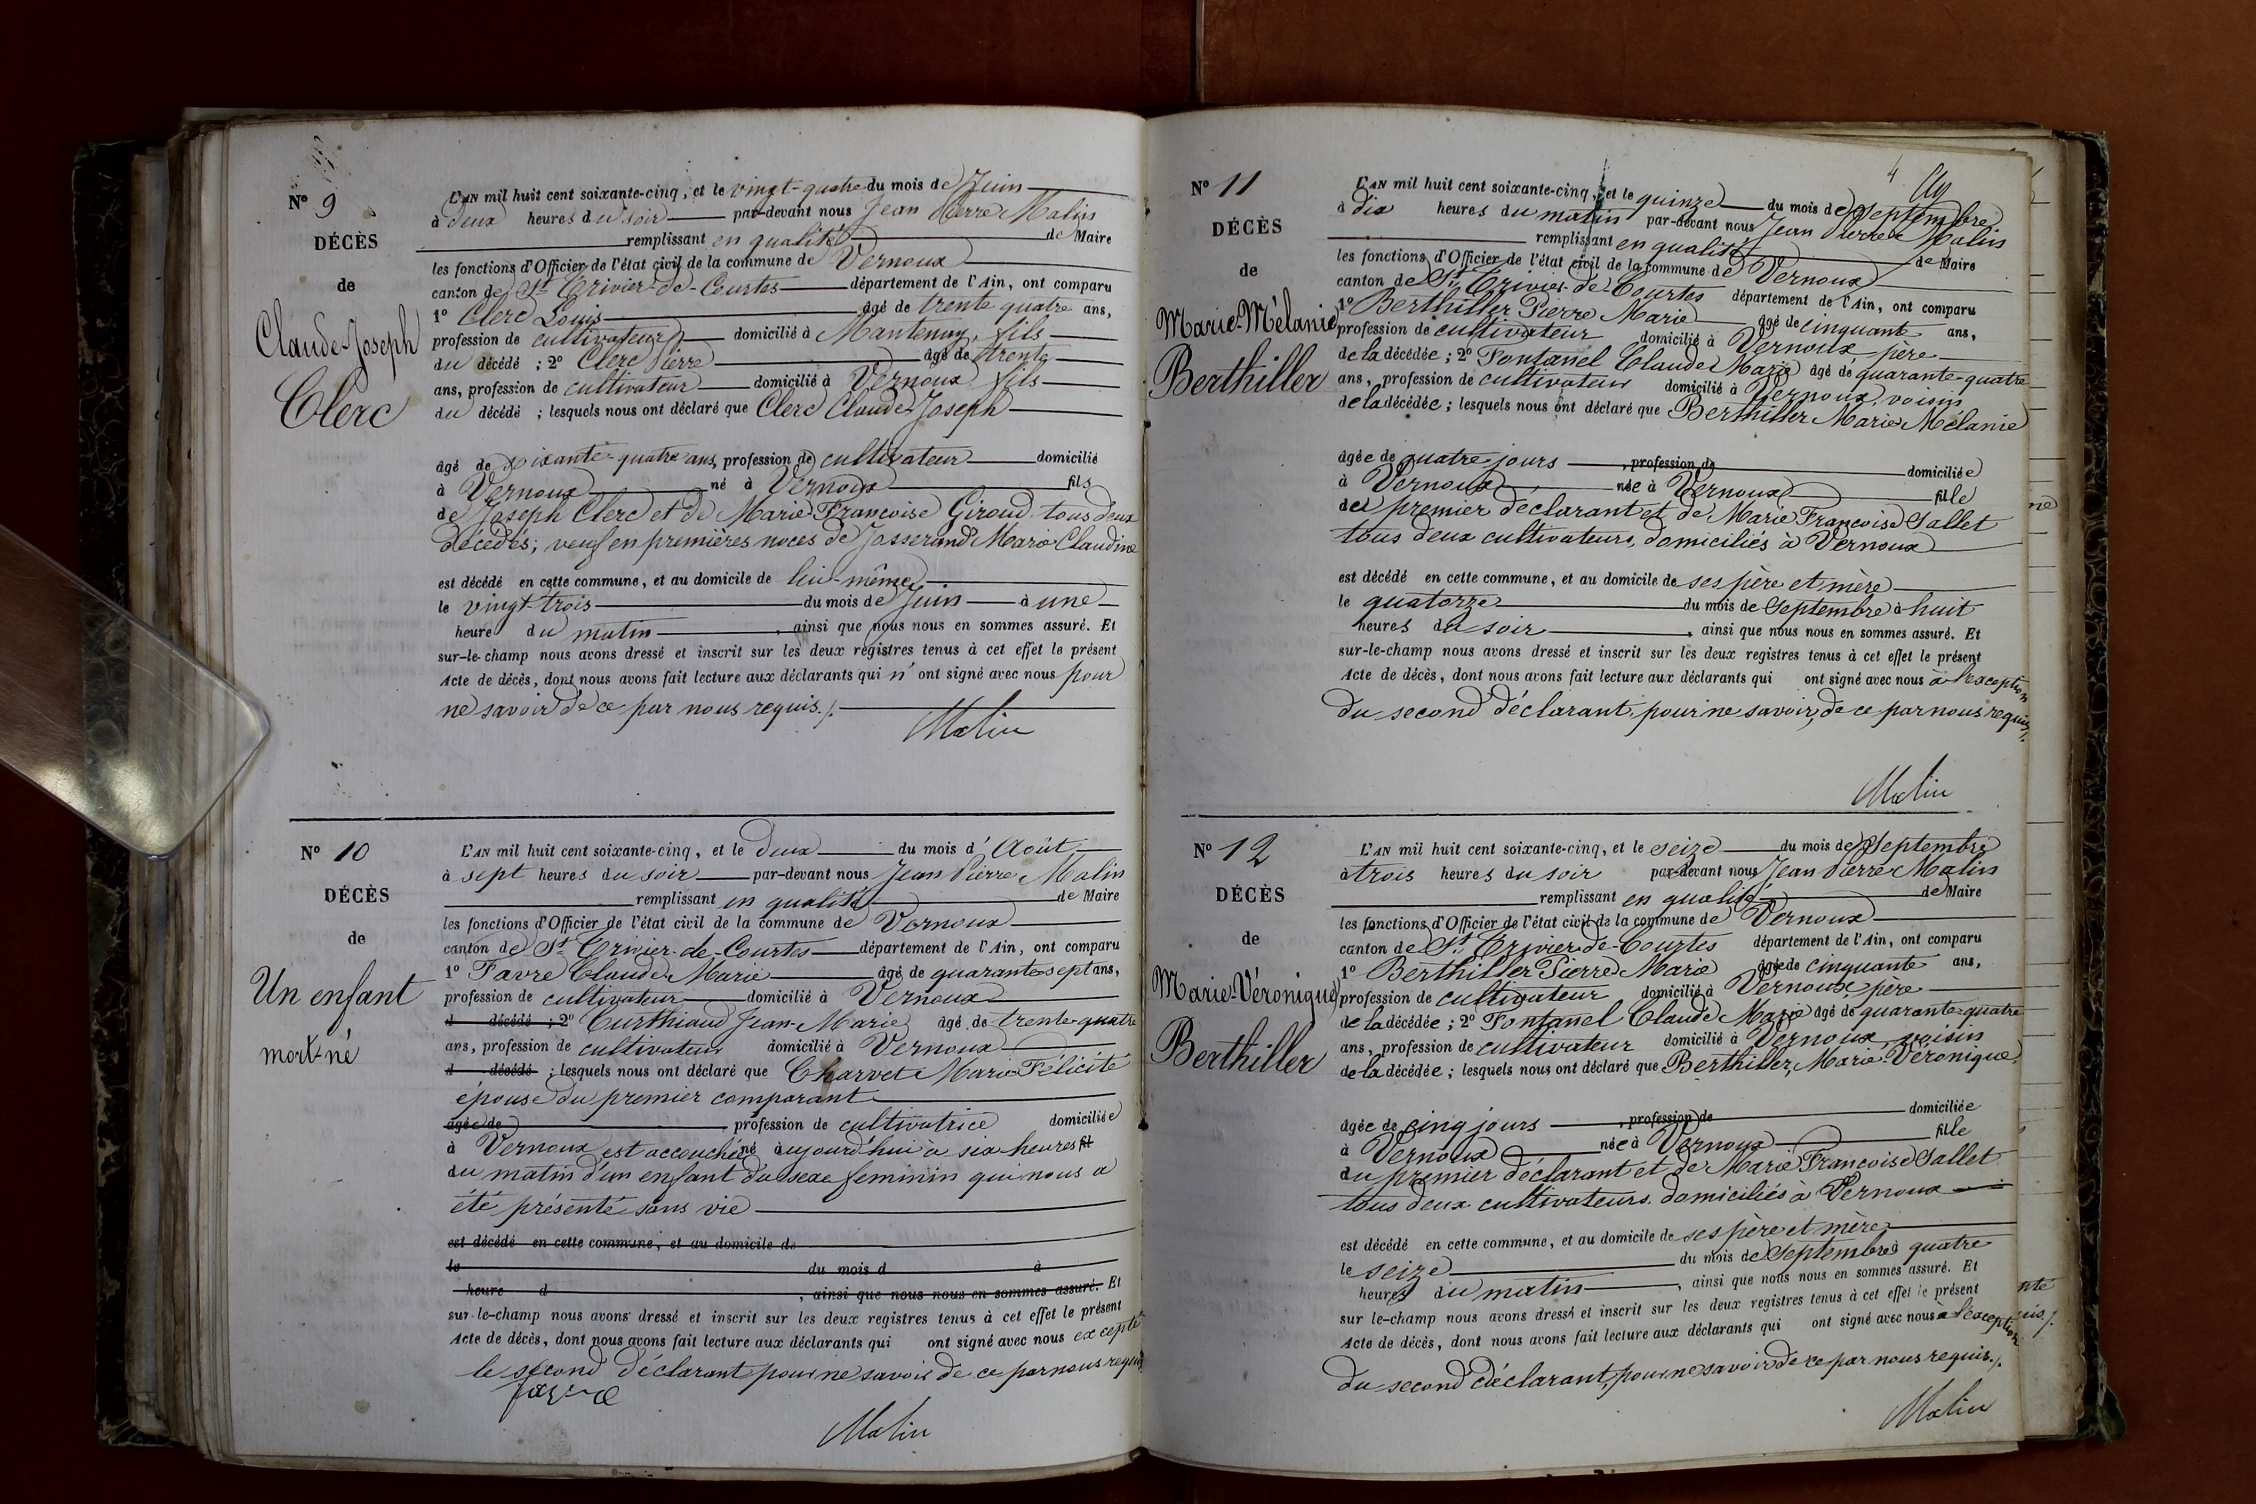 N° 9
DÉCÈS
de
Claude-Joseph
Clerc
L'AN mil huit cent soixante-cinq, et le vingt-quatre du mois de Juin
à deux heures du soir par-devant nous Jean Pierre Malin
remplissant en qualité de Maire
les fonctions d'Officier de l'état civil de la commune de Vernoux
canton de St Trivier-de-Courtes département de l'Ain, ont comparu
1° Clerc Louis âgé de trente quatre ans,
profession de cultivateur domicilié à Mantenay, fils
du décédé ; 2° Clerc Pierre âgé de trente
ans, profession de cultivateur domicilié à Vernoux fils
du décédé ; lesquels nous ont déclaré que Clerc Claude-Joseph
âgé de soixante-quatre ans, profession de cultivateur domicilié
à Vernoux né à Vernoux fils
de Joseph Clerc et de Marie Françoise Giroud tous deux
décédés; veuf en premières noces de Josserand Marie Claudine
est décédé en cette commune, et au domicile de lui-même
le vingt-trois du mois de Juin à une
heure du matin , ainsi que nous nous en sommes assuré. Et
sur-le-champ nous avons dressé et inscrit sur les deux registres tenus à cet effet le présent
Acte de décès, dont nous avons fait lecture aux déclarants qui n'ont signé avec nous pour
ne savoir de ce par nous requis./.
Malin
N° 10
DÉCÈS
de
Un enfant
mort-né
L'AN mil huit cent soixante-cinq, et le deux du mois d'Août
à sept heures du soir par-devant nous Jean Pierre Malin
remplissant en qualité de Maire
les fonctions d'Officier de l'état civil de la commune de Vernoux
canton de St Trivier-de-Courtes département de l'Ain, ont comparu
1° Favre Claude Marie âgé de quarante sept ans,
profession de cultivateur domicilié à Vernoux
d décédé ; 2° Curthiaud Jean-Marie âgé de trente-quatre
ans, profession de cultivateur domicilié à Vernoux
d décédé ; lesquels nous ont déclaré que Charvet Marie Félicité
épouse du premier comparant
âgée de profession de cultivatrice domiciliée
à Vernoux est accouchée né aujourd'hui à six heures fil
du matin d'un enfant du sexe feminin qui nous a
été présenté sans vie
est décédé en cette commune, et au domicile de
le du mois d à
heure d , ainsi que nous nous en sommes assuré. Et
sur-le-champ nous avons dressé et inscrit sur les deux registres tenus à cet effet le présent
Acte de décès, dont nous avons fait lecture aux déclarants qui ont signé avec nous excepté
le second déclarant pour ne savoir de ce par nous requis
Malin
4
N° 11
DÉCÈS
de
Marie-Mélanie
Berthiller
L'AN mil huit cent soixante-cinq, et le quinze du mois de Septembre
à dix heures du matin par-devant nous Jean Pierre Malin
remplissant en qualité de Maire
les fonctions d'Officier de l'état civil de la commune de Vernoux
canton de St Trivier-de-Courtes département de l'Ain, ont comparu
1° Berthiller Pierre Marie âgé de cinquante ans,
profession de cultivateur domicilié à Vernoux père
de la décédée ; 2° Fontanel Claude Marie âgé de quarante-quatre
ans, profession de cultivateur domicilié à Vernoux, voisin
de la décédée ; lesquels nous ont déclaré que Berthiller Marie Mélanie
âgée de quatre jours , profession de domiciliée
à Vernoux née à Vernoux fille
du premier déclarant et de Marie Françoise Sallet
tous deux cultivateurs, domiciliés à Vernoux
est décédé en cette commune, et au domicile de ses père et mère
le quatorze du mois de Septembre à huit
heures du soir , ainsi que nous nous en sommes assuré. Et
sur-le-champ nous avons dressé et inscrit sur les deux registres tenus à cet effet le présent
Acte de décès, dont nous avons fait lecture aux déclarants qui ont signé avec nous à l'exception
du second déclarant, pour ne savoir, de ce par nous requis./.
Malin
N° 12
DÉCÈS
de
Marie-Véronique
Berthiller
L'AN mil huit cent soixante-cinq, et le seize du mois de Septembre
à trois heures du soir par-devant nous Jean Pierre Malin
remplissant en qualité de Maire
les fonctions d'Officier de l'état civil de la commune de Vernoux
canton de St Trivier-de-Courtes département de l'Ain, ont comparu
1° Berthiller Pierre Marie âgé de cinquante ans,
profession de cultivateur domicilié à Vernoux père
de la décédée ; 2° Fontanel Claude Marie âgé de quarante-quatre
ans, profession de cultivateur domicilié à Vernoux, voisin
de la décédée ; lesquels nous ont déclaré que Berthiller, Marie Véronique
âgée de cinq jours , profession de domiciliée
à Vernoux née à Vernoux fille
du premier déclarant et de Marie Françoise Sallet
tous deux cultivateurs domiciliés à Vernoux
est décédé en cette commune, et au domicile de ses père et mère
le seize du mois de Septembre à quatre
heures du matin , ainsi que nous nous en sommes assuré. Et
sur le-champ nous avons dressé et inscrit sur les deux registres tenus à cet effet le présent
Acte de décès, dont nous avons fait lecture aux déclarants qui ont signé avec nous à l'exception
du second déclarant, pour ne savoir de ce par nous requis./.
Malin